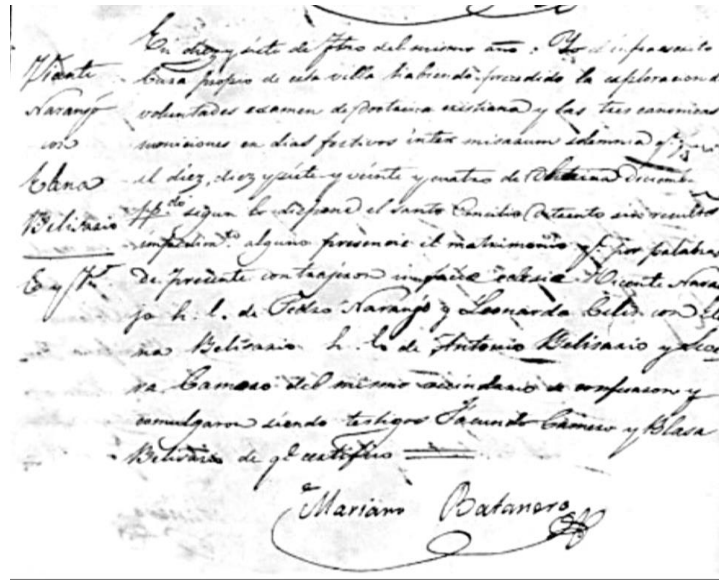 En diez y siete de Fbro del mismo año: Yo el infraescrito
Cura propio de esta villa habiendo precedido la exploracion de
voluntades examen de Doctrina cristiana y las tres canonicas
moniciones en dias festivos inter misarum solemnia
el diez, diez y siete y veinte y cuatro de Diciembre
segun lo dispone el santo Concilio de Trento sin resultar
impedimto. alguno presencié el matrimonio q.e por palabras
de presente contrajeron in facie eclesie Vicente Naran
jo h. l. de Pedro Naranjo y Leonarda Celis con Ele
na Belisario h. l. de Antonio Belisario y
na Camero del mismo vecindario se confesaron y
comulgaron siendo testigos Facundo Camero y Blasa
Belisario de q.e certifico
Vicente
Naranjo
con
Elena
Belisario
Mariano Batanero